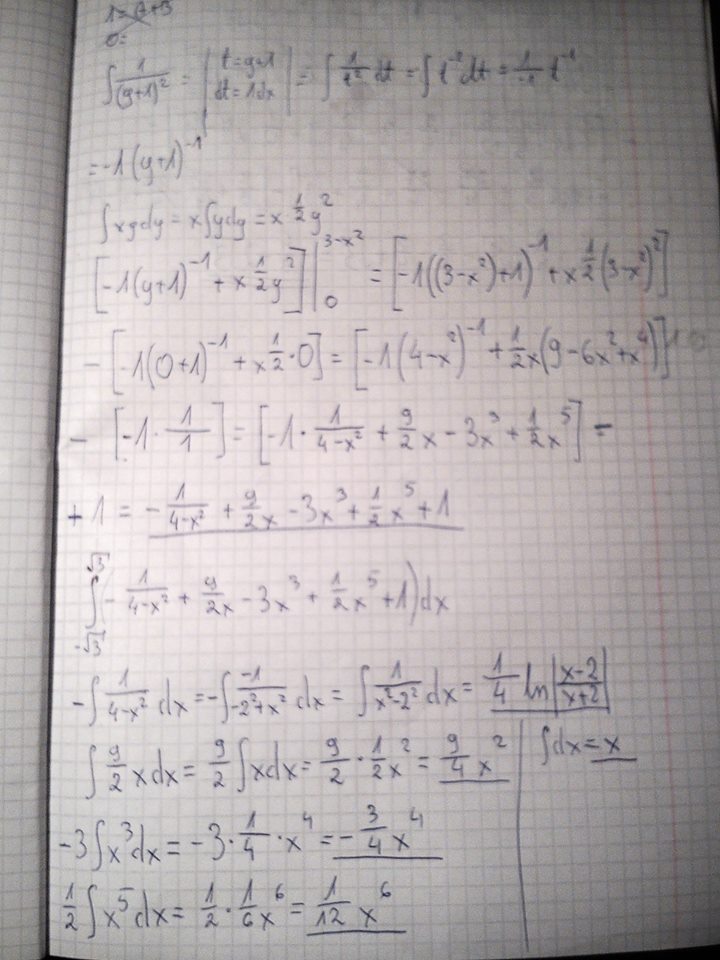 1=A+B
0=
∫ 1/(y+1)² = | t=y+1 dt=1dx | = ∫ 1/t² dt = ∫ t⁻² dt = 1/-1 t⁻¹
= -1(y+1)⁻¹
∫xydy = x∫ydy = x 1/2 y²
[-1(y+1)⁻¹ + x 1/2 y²] |₀^(3-x²) = [-1((3-x²)+1)⁻¹ + x 1/2 (3-x²)²]
- [-1(0+1)⁻¹ + x 1/2 · 0] = [-1(4-x²)⁻¹ + 1/2 x(9-6x²+x⁴)]
- [-1 · 1/1] = [-1 · 1/(4-x²) + 9/2 x - 3x³ + 1/2 x⁵] -
+ 1 = - 1/(4-x²) + 9/2 x - 3x³ + 1/2 x⁵ + 1
∫_(-√3)^(√3) - 1/(4-x²) + 9/2 x - 3x³ + 1/2 x⁵ + 1) dx
-∫ 1/(4-x²) dx = -∫ -1/(-2²+x²) dx = ∫ 1/(x²-2²) dx = 1/4 ln |(x-2)/(x+2)|
∫ 9/2 x dx = 9/2 ∫xdx = 9/2 · 1/2 x² = 9/4 x²
∫dx = x
-3∫x³dx = -3 · 1/4 · x⁴ = - 3/4 x⁴
1/2 ∫x⁵dx = 1/2 · 1/6 x⁶ = 1/12 x⁶